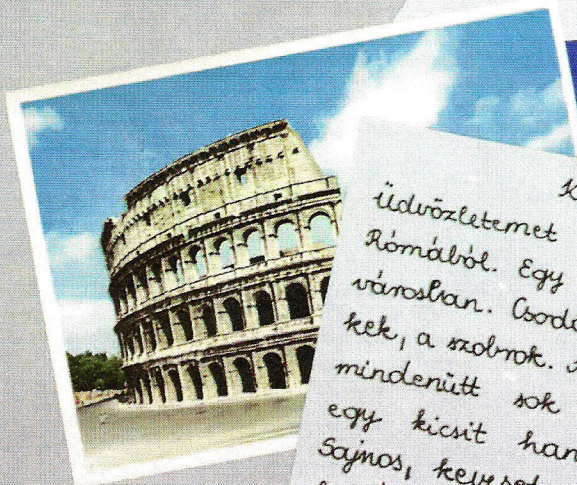 üdvözletemet
Rómából. Egy
városban.
kek, a szobrok.
mindenütt sok
egy kicsit
Sajnos,